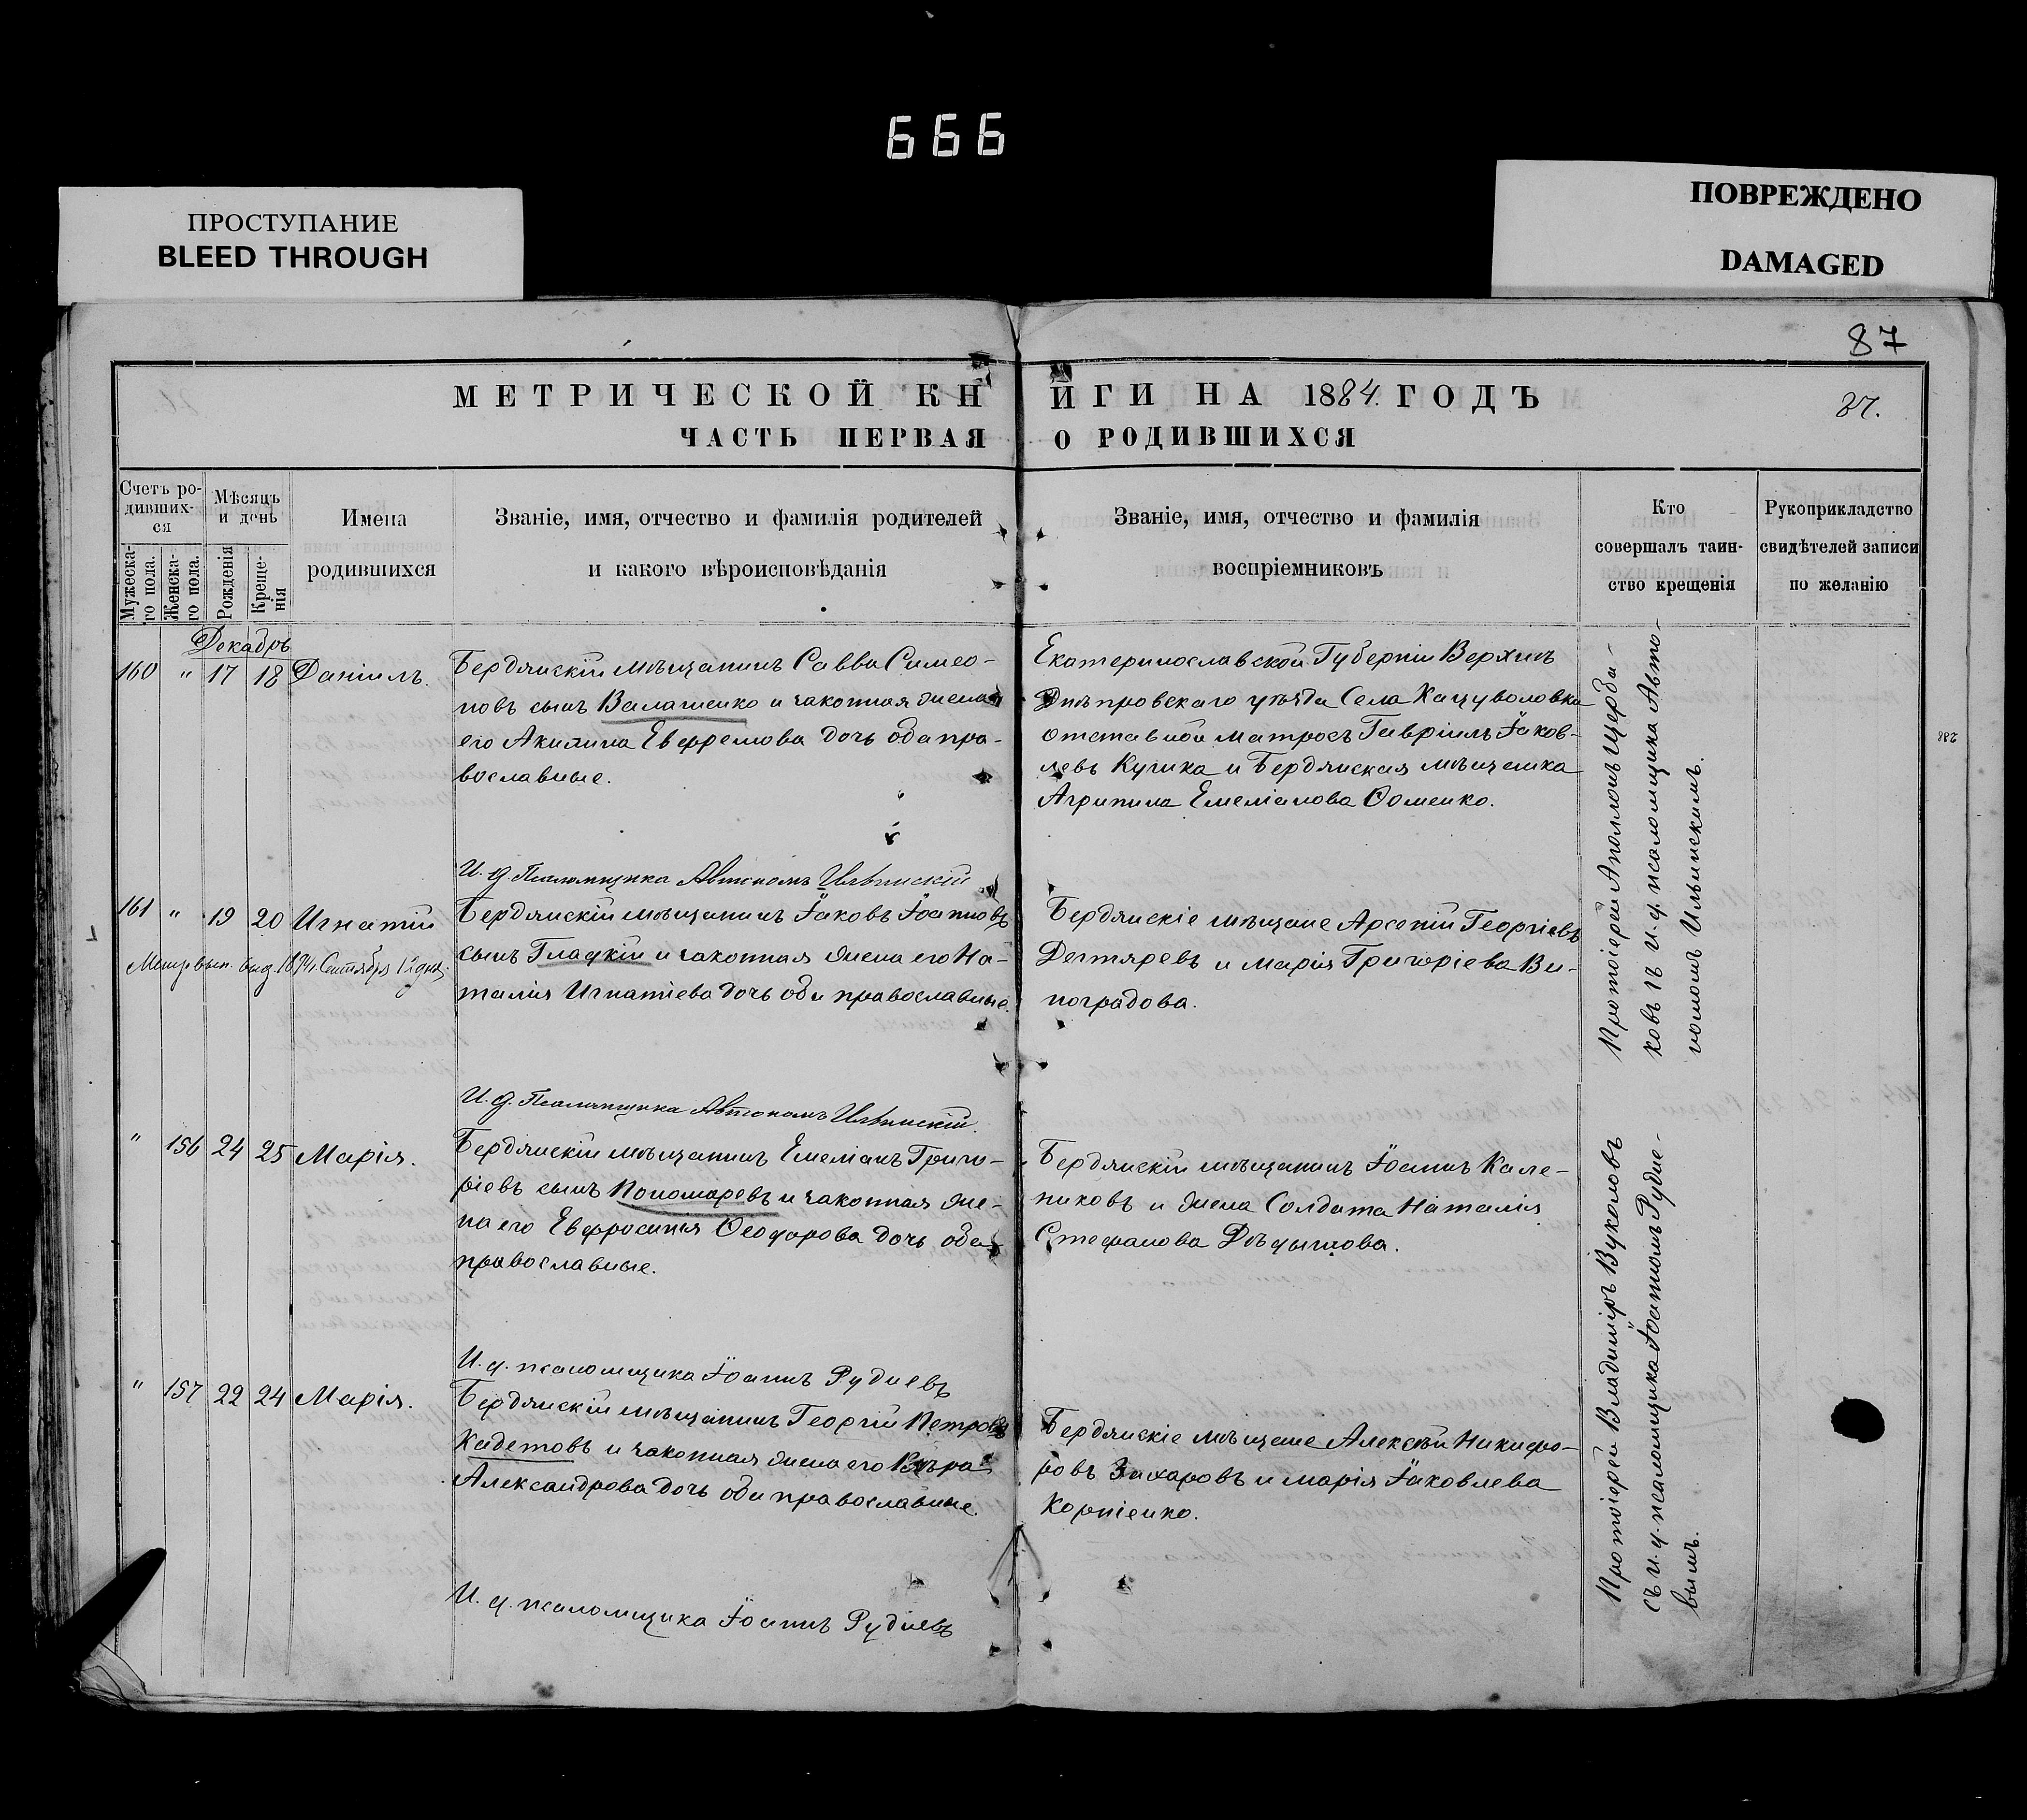 666
ПРОСТУПАНИЕ
BLEED THROUGH
ПОВРЕЖДЕНО
DAMAGED
87
МЕТРИЧЕСКОЙ КНИГИ НА 1884. ГОДЪ
87.
ЧАСТЬ ПЕРВАЯ О РОДИВШИХСЯ
Счетъ ро-
дивших-
ся
Мужеска-
го пола.
Женска-
го пола.
Мѣсяцъ
и день
Рожденія
Креще-
нія
Имена
родившихся
Званіе, имя, отчество и фамилія родителей
и какого вѣроисповѣданія
Званіе, имя, отчество и фамилія
воспріемниковъ
Кто
совершалъ таин-
ство крещенія
Рукоприкладство
свидѣтелей записи
по желанію
Декабрь
160 " 17 18 Даніилъ.
Бердянскій мѣщанинъ Савва Симео-
новъ сынъ Валашенко и законная жена
его Акилина Евфремова дочь оба пра-
вославные.
Екатеринославской Губерніи Верхнъ
Днѣпровскаго уѣзда Села Хацуволовки
отставной матросъ Гавріилъ Іаков-
левъ Кучика и Бердянская мѣщанка
Агрипина Емеліанова Ѳоменко.
И. д. Псаломщика Автономъ Ильинскій
161 " 19 20 Игнатій
Метр. вып. выд. 1894 г. Сентября
Бердянскій мѣщанинъ Іаковъ Іоанновъ
сынъ Гладкій и законная жена его На-
талія Игнатіева дочь оба православные
Бердянскіе мѣщане Арсеній Георгіевъ
Дегтяревъ и Марія Григоріева Ви-
ноградова.
Протоіерей Аполлонъ Щерба-
ковъ съ и. д. псаломщика Авто-
номомъ Ильинскимъ.
И. д. Псаломщика Автономъ Ильинскій.
" 156 24 25 Марія.
Бердянскій мѣщанинъ Емеліанъ Григо-
ріевъ сынъ Пономаревъ и законная же-
на его Евфросинія Ѳеодорова дочь оба
православные.
Бердянскій мѣщанинъ Іоаннъ Кале-
никовъ и жена Солдата Наталія
Стефанова Дѣдышова.
И. д. псаломщика Іоаннъ Рудневъ
" 157 22 24 Марія.
Бердянскій мѣщанинъ Георгій Петровъ
Кадетовъ и законная жена его Вѣра
Александрова дочь оба православные.
Бердянскіе мѣщане Алексѣй Никифо-
ровъ Захаровъ и Марія Іаковлева
Корніенко.
Протоіерей Владиміръ Вуколовъ
съ и. д. псаломщика Іоанномъ Рудне-
вымъ.
И. д. псаломщика Іоаннъ Рудневъ
288